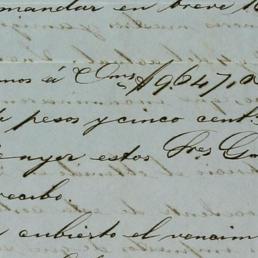 mandar en breve
mos á Ums $19,647,2
pesos y cinco cent
ayer estos Sres Go
recibo.
cubierto el vencim